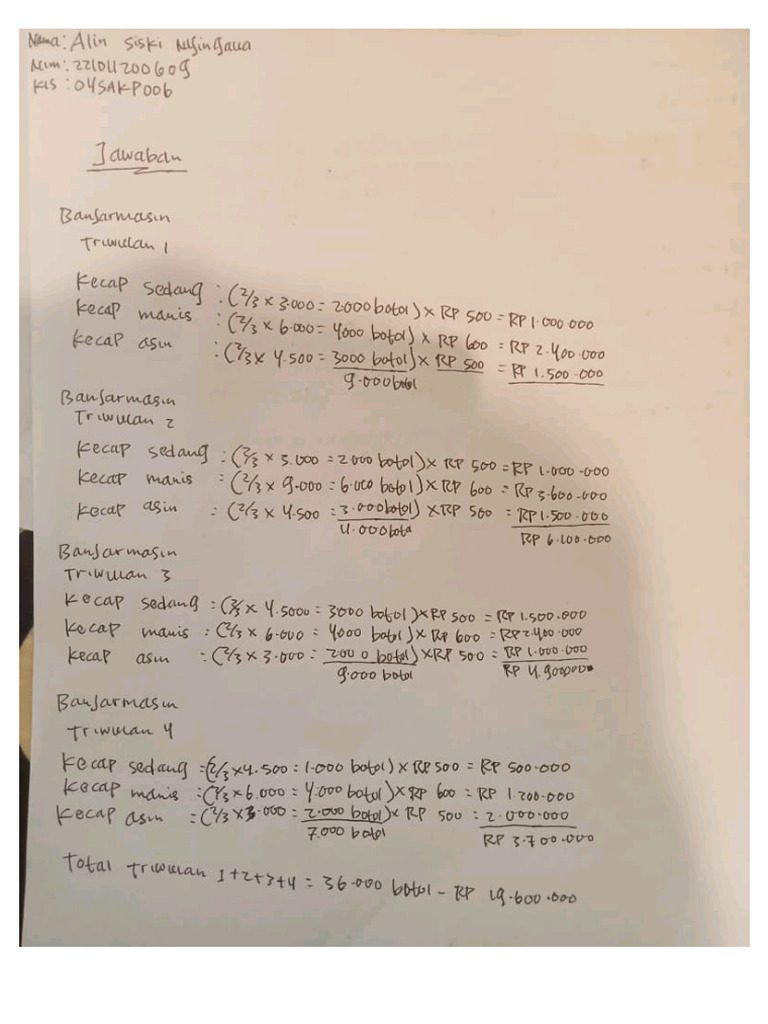 Nama: Alin Siski Nefingaua
Nim: 221011200609
Kls : 04SAKP006
Jawaban
Banjarmasin
Triwulan 1
Kecap sedang : (2/3 x 3.000 = 2000 botol) x RP 500 = RP 1.000.000
Kecap manis : (2/3 x 6.000 = 4000 botol) x RP 600 = RP 2.400.000
Kecap asin : (2/3 x 4.500 = 3000 botol) x RP 500 = RP 1.500.000
9.000 botol
Banjarmasin
Triwulan 2
Kecap sedang : (2/3 x 3.000 = 2.000 botol) x RP 500 = RP 1.000.000
Kecap manis : (2/3 x 9.000 = 6.000 botol) x RP 600 = RP 3.600.000
Kecap asin : (2/3 x 4.500 = 3.000 botol) x RP 500 = RP 1.500.000
11.000 botol RP 6.100.000
Banjarmasin
Triwulan 3
Kecap sedang : (2/3 x 4.5000 = 3000 botol) x RP 500 = RP 1.500.000
Kecap manis : (2/3 x 6.000 = 4000 botol) x RP 600 = RP 2.400.000
Kecap asin : (2/3 x 3.000 = 2000 botol) x RP 500 = RP 1.000.000
9.000 botol RP 4.900.000
Banjarmasin
Triwulan 4
Kecap sedang : (2/3 x 4.500 = 1.000 botol) x RP 500 = RP 500.000
Kecap manis : (2/3 x 6.000 = 4.000 botol) x RP 600 = RP 1.200.000
Kecap asin : (2/3 x 3.000 = 2.000 botol) x RP 500 = 2.000.000
7.000 botol RP 3.700.000
Total Triwulan 1+2+3+4 = 36.000 botol - RP 19.600.000